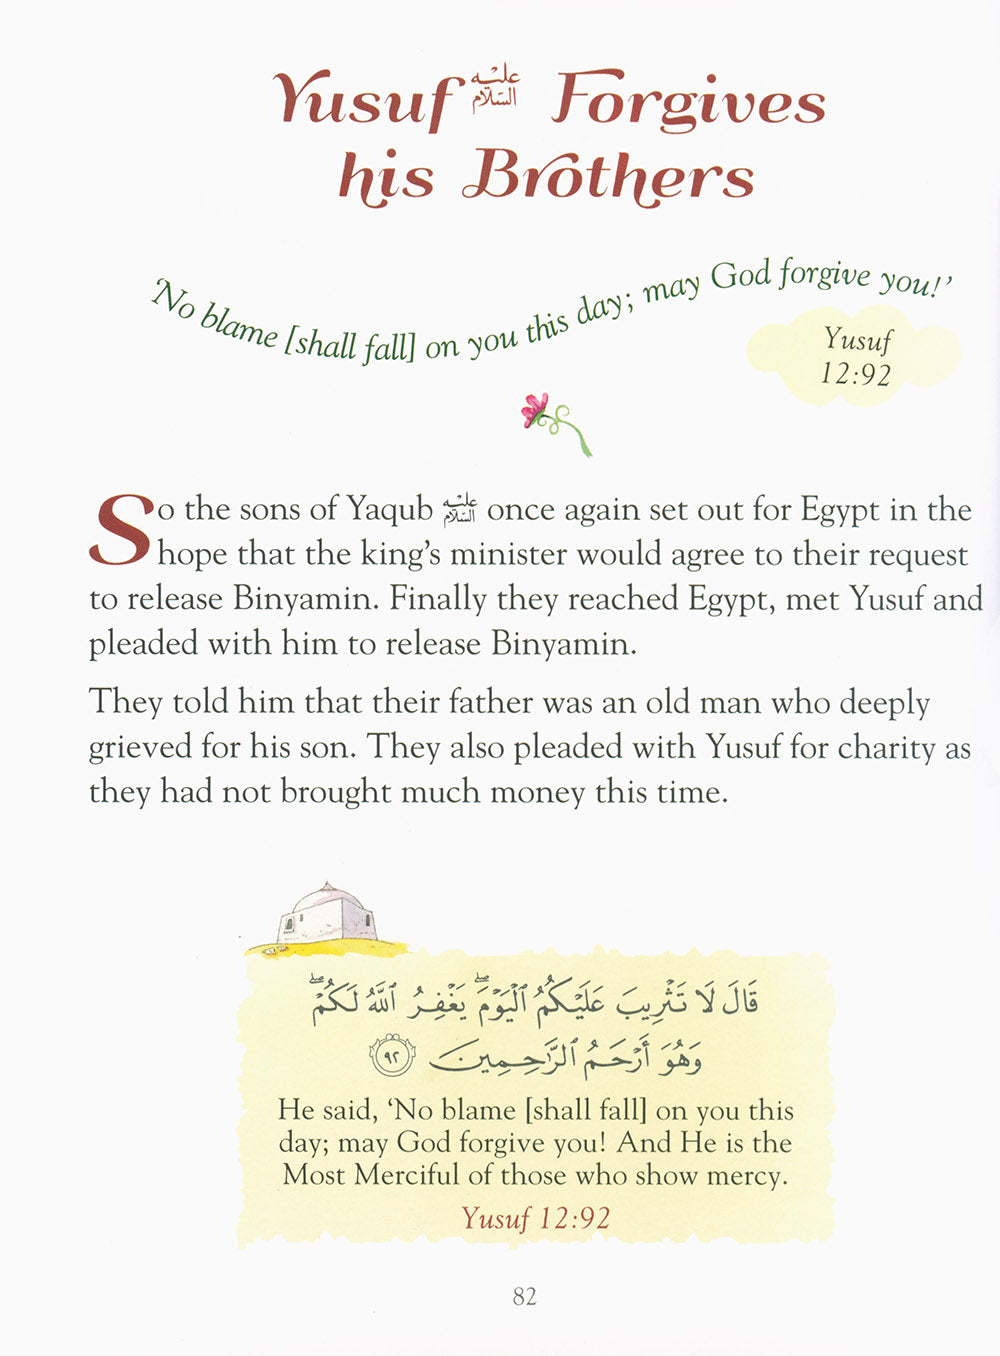 Yusuf عليه السلام Forgives
his Brothers
‘No blame [shall fall] on you this day; may God forgive you!’
Yusuf
12:92
So the sons of Yaqub عليه السلام once again set out for Egypt in the
hope that the king’s minister would agree to their request
to release Binyamin. Finally they reached Egypt, met Yusuf and
pleaded with him to release Binyamin.
They told him that their father was an old man who deeply
grieved for his son. They also pleaded with Yusuf for charity as
they had not brought much money this time.
قَالَ لَا تَثْرِيبَ عَلَيْكُمُ ٱلْيَوْمَ ۖ يَغْفِرُ ٱللَّهُ لَكُمْ ۖ
وَهُوَ أَرْحَمُ ٱلرَّٰحِمِينَ ٩٢
He said, ‘No blame [shall fall] on you this
day; may God forgive you! And He is the
Most Merciful of those who show mercy.
Yusuf 12:92
82